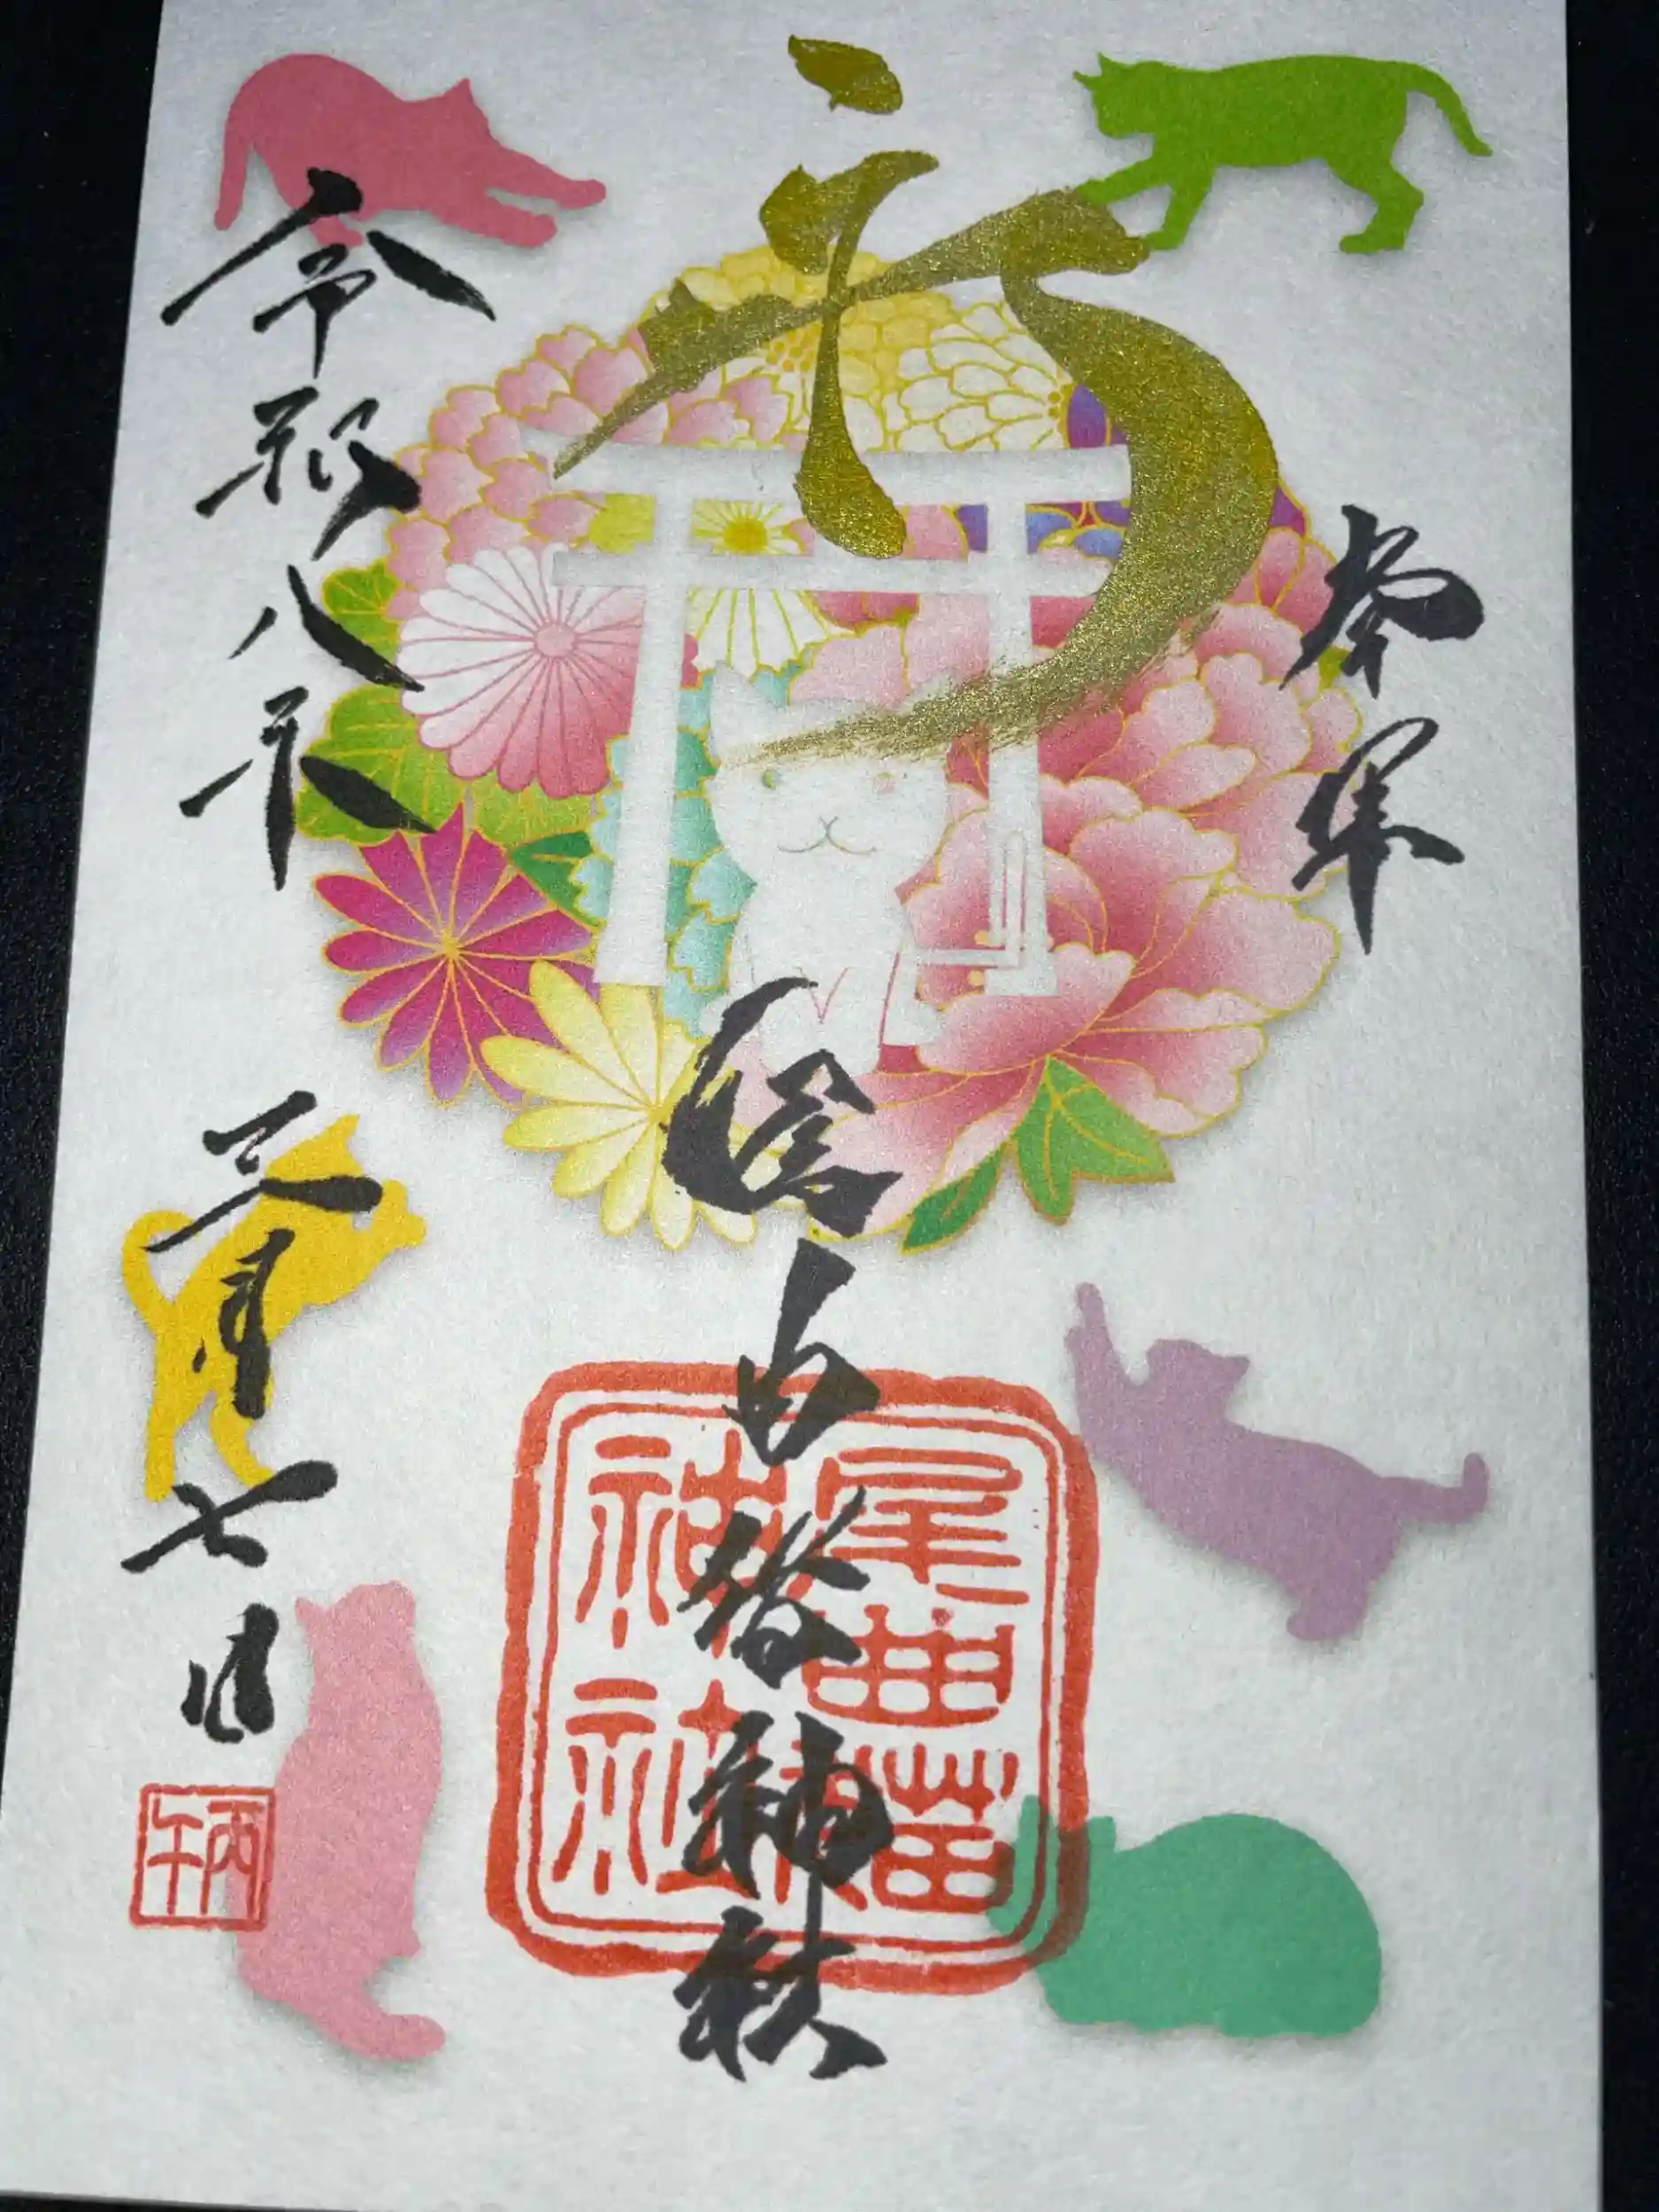 奉拝
尾曲猫神社
尾曲猫
神社
令和八年
三月七日
丙午